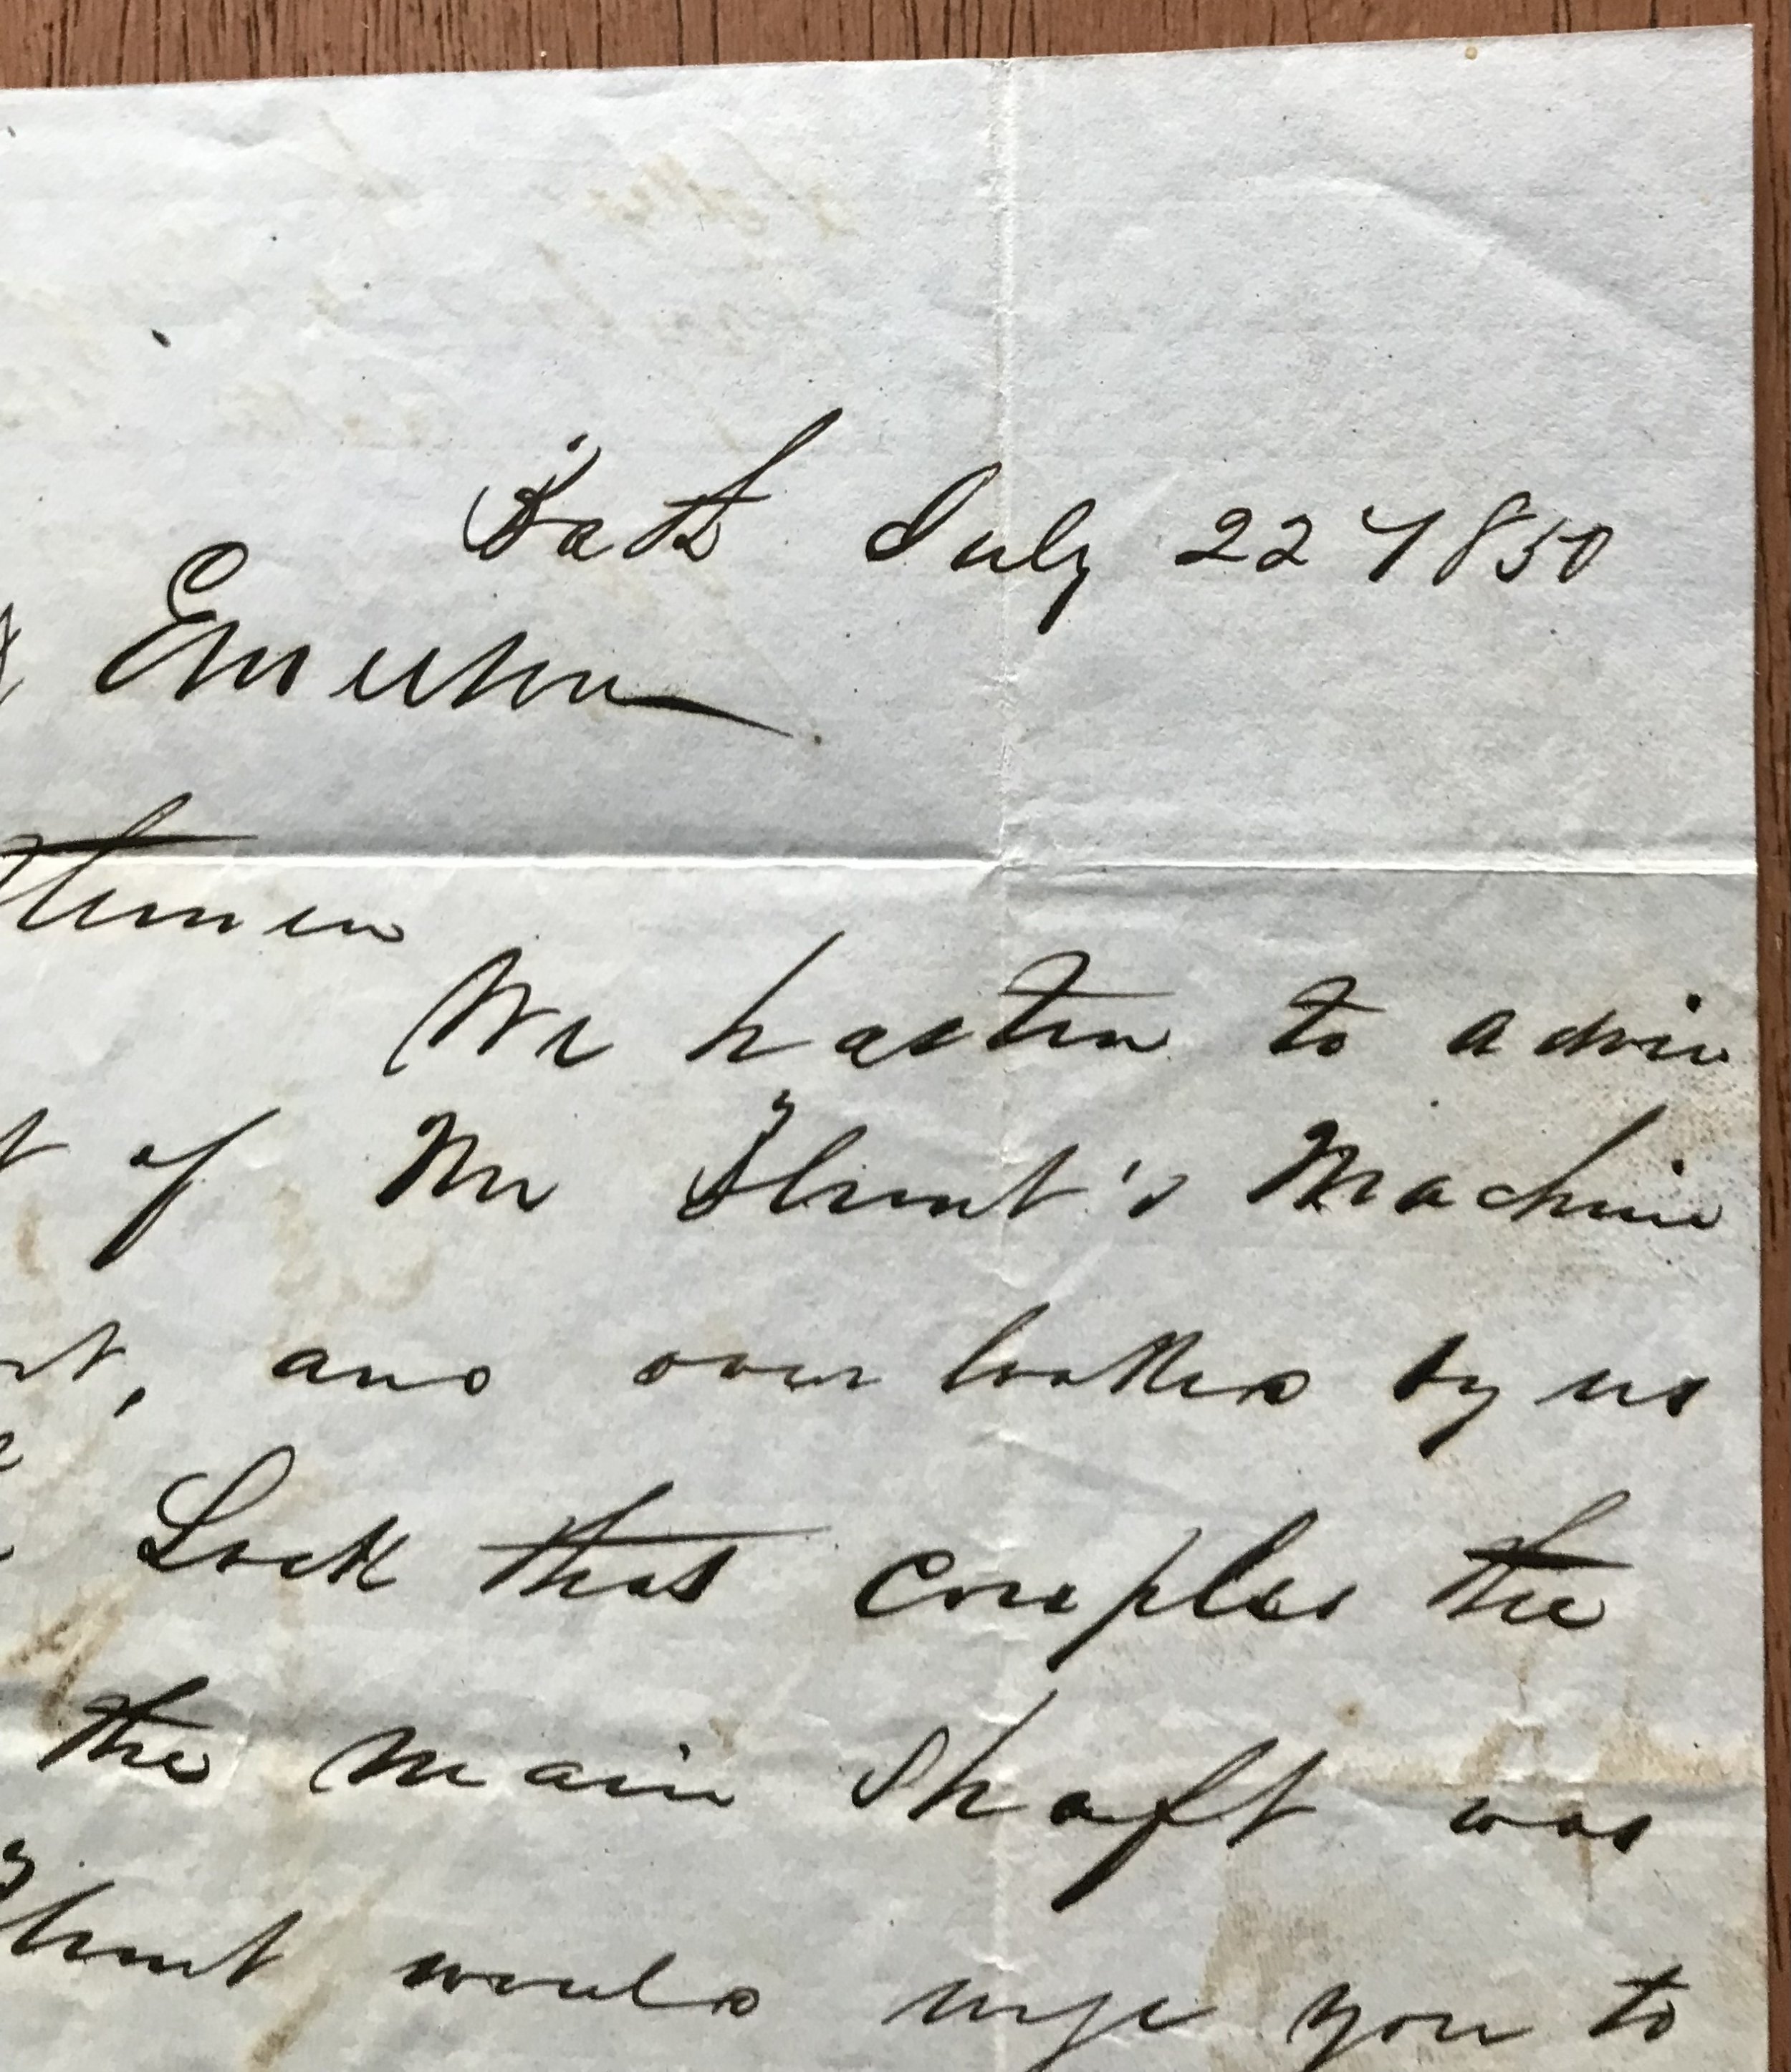 Bath July 22 1850
& Emerson
tlemen
We hasten to advise
t of Mr Hunt's Machine
rt, and over looked by us
Lock that couples the
the main Shaft was
Hunt would urge you to